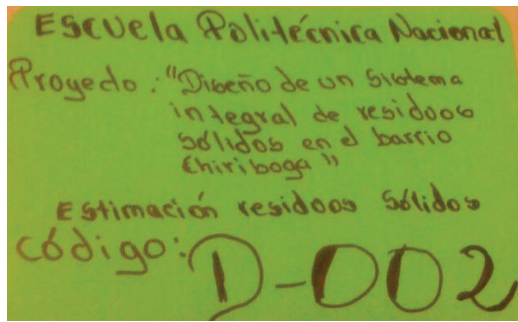 Escuela Politécnica Nacional
Proyecto: "Diseño de un Sistema
integral de residoos
sólidos en el barrio
Chiriboga"
Estimación residoos Sólidos
Código: D-002